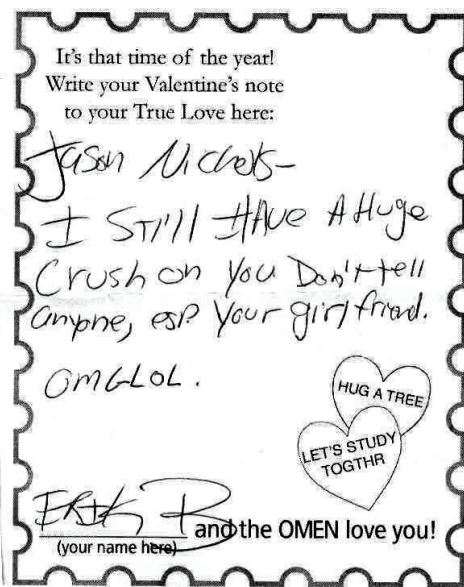 It's that time of the year!
Write your Valentine's note
to your True Love here:
Jason Nichols-
I Still HAve A Huge
Crush on you Don't tell
anyone, esp. your girlfriend.
OMGLOL.
HUG A TREE
LET'S STUDY
TOGTHR
ERIK B and the OMEN love you!
(your name here)